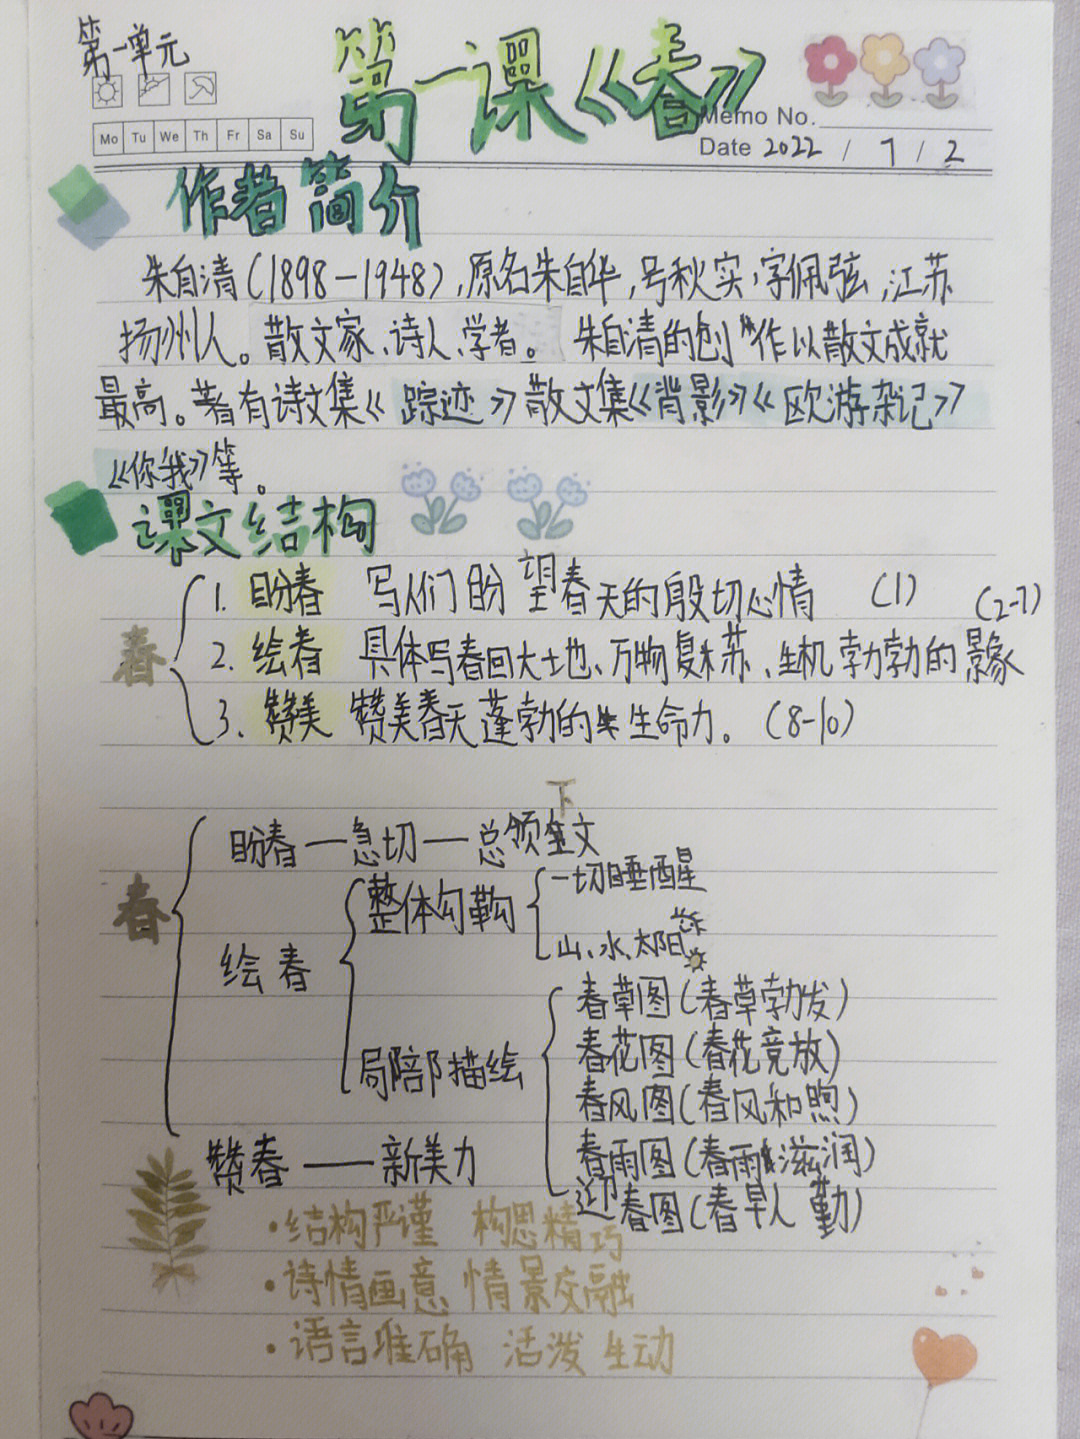 第一单元
第一课《春》
Mo Tu We Th Fr Sa Su
Memo No.
Date 2022 / 7 / 2
作者简介
朱自清(1898-1948),原名朱自华,号秋实,字佩弦,江苏
扬州人。散文家、诗人、学者。朱自清的创作以散文成就
最高。著有诗文集《踪迹》散文集《背影》《欧游杂记》
《你我》等。
课文结构
春
1. 盼春 写人们盼望春天的殷切心情 (1)
2. 绘春 具体写春回大地、万物复苏、生机勃勃的景象 (2-7)
3. 赞美 赞美春天蓬勃的生命力。(8-10)
春
盼春—急切—总领全文
下
绘春
整体勾勒
一切睡醒
山、水、太阳
局部描绘
春草图(春草勃发)
春花图(春花竞放)
春风图(春风和煦)
春雨图(春雨滋润)
迎春图(春早人勤)
赞春——新美力
·结构严谨 构思精巧
·诗情画意 情景交融
·语言准确 活泼生动